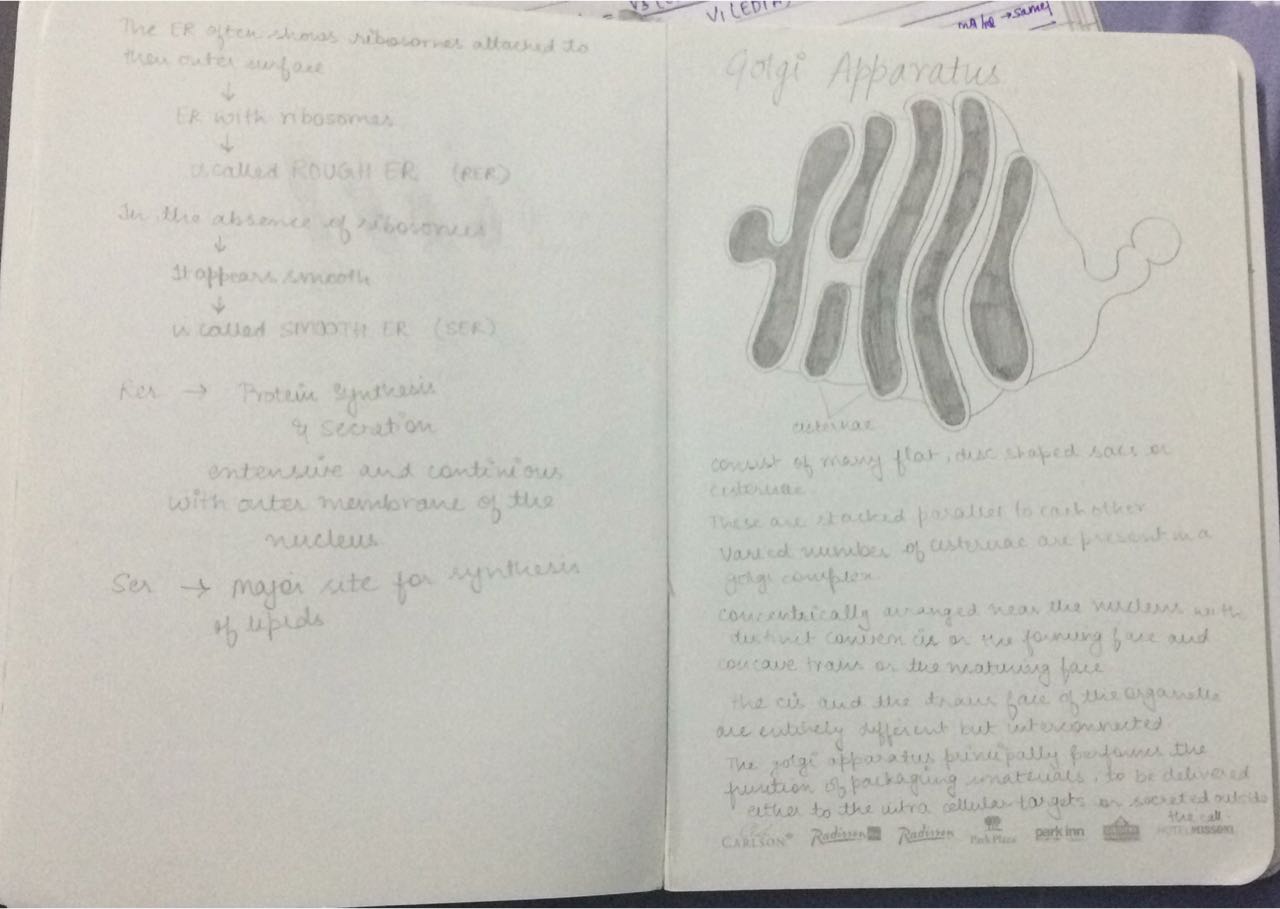 The ER often shows ribosomes attached to
their outer surface
↓
ER with ribosomes
↓
is called ROUGH ER (RER)
In the absence of ribosomes
↓
It appears smooth
↓
is called SMOOTH ER (SER)
Rer → Protein synthesis
& secretion
extensive and continious
with outer membrane of the
nucleus
Ser → major site for synthesis
of lipids
Golgi Apparatus
cisternae
consist of many flat, disc shaped sacs or
cisternae
These are stacked parallel to each other
Varied number of cisternae are present in a
golgi complex
concentrically arranged near the nucleus with
distinct convex cis or the forming face and
concave trans or the maturing face
the cis and the trans face of the organelle
are entirely different but interconnected
The golgi apparatus principally performs the
function of packaging materials, to be delivered
either to the intra cellular targets or secreted outside
the cell
CARLSON Radisson Radisson Park Plaza park inn HOTEL MISSONI